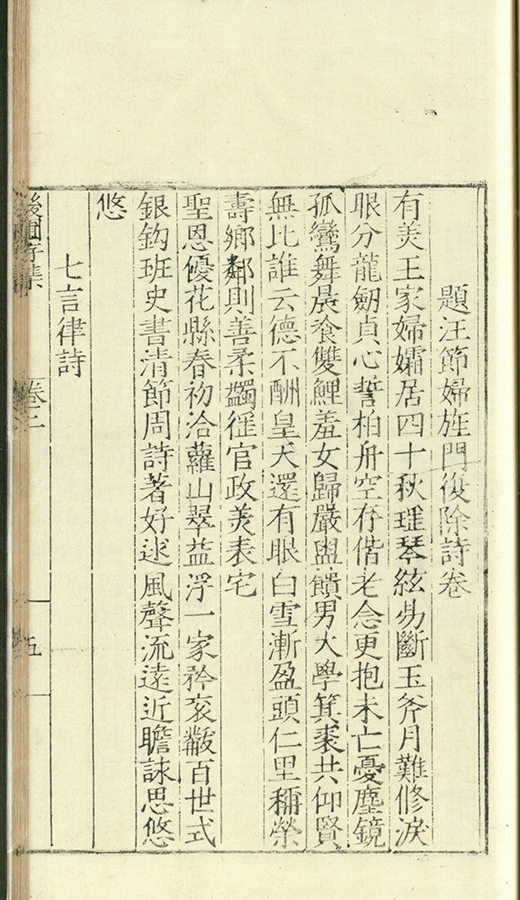 題汪節婦旌門復除詩卷
有美王家婦孀居四十秋瑶琴絃易斷玉斧月難修淚
眼分龍劒貞心誓柏舟空存偕老念更抱未亡憂塵鏡
孤鸞舞晨飡雙鯉羞女歸嚴盥饋男大學箕裘共仰賢
無比誰云德不酬皇天還有眼白雪漸盈頭仁里稱榮
壽鄉鄰則善柔蠲徭官政美表宅
聖恩優花縣春初洽蘿山翠益浮一家矜衮黻百世式
銀鈎班史書清節周詩著好逑風聲流遠近瞻詠思悠
悠
七言律詩
後圃存集 卷二 五